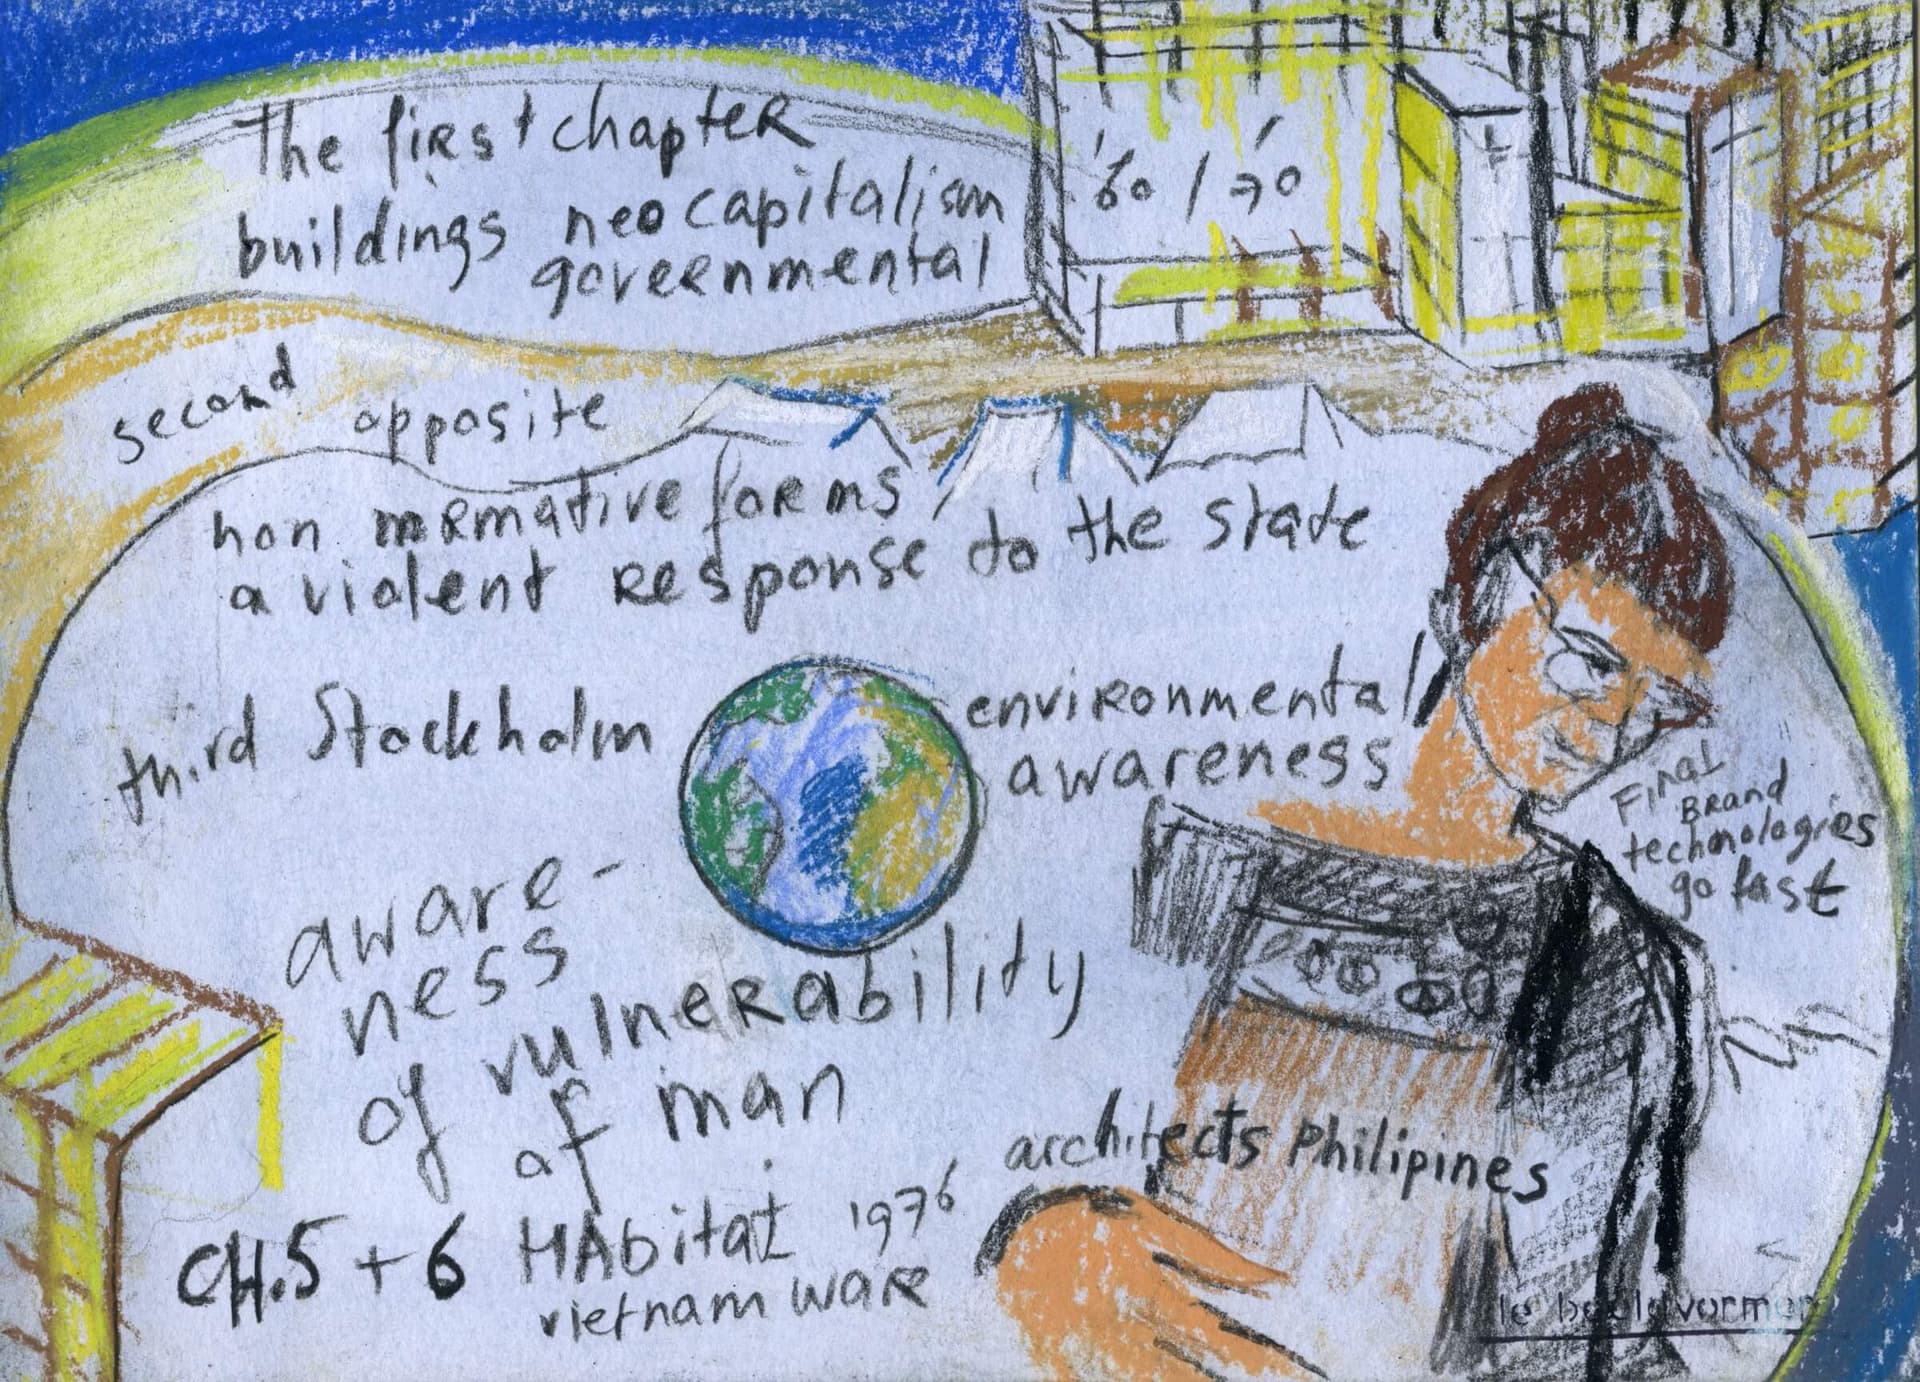 The first chapter
buildings neo capitalism
governmental
'60 / '70
second opposite
non normative forms,
a violent response to the state
third Stockholm
environmental
awareness
Final
Brand
technologies
go fast
aware-
ness
of vulnerability
of man
architects Philipines
CH.5 + 6 HAbitat 1976
vietnam ware